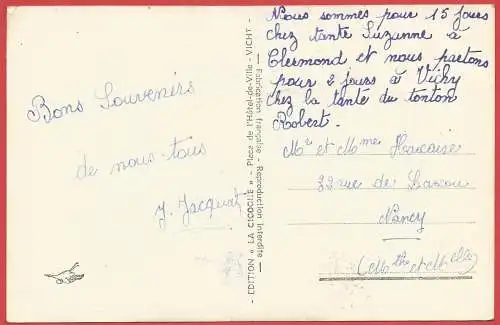 Bons Souvenirs
de nous tous
J. Jacquot
- EDITION " LA CIGOGNE " - Place de l'Hôtel-de-Ville - VICHY -
— Fabrication française - Reproduction interdite —
Nous sommes pour 15 jours
chez tante Suzanne à
Clermond et nous partons
pour 2 jours à Vichy
chez la tante du tonton
Robert.
Mr et Mme
22 rue de
Nancy